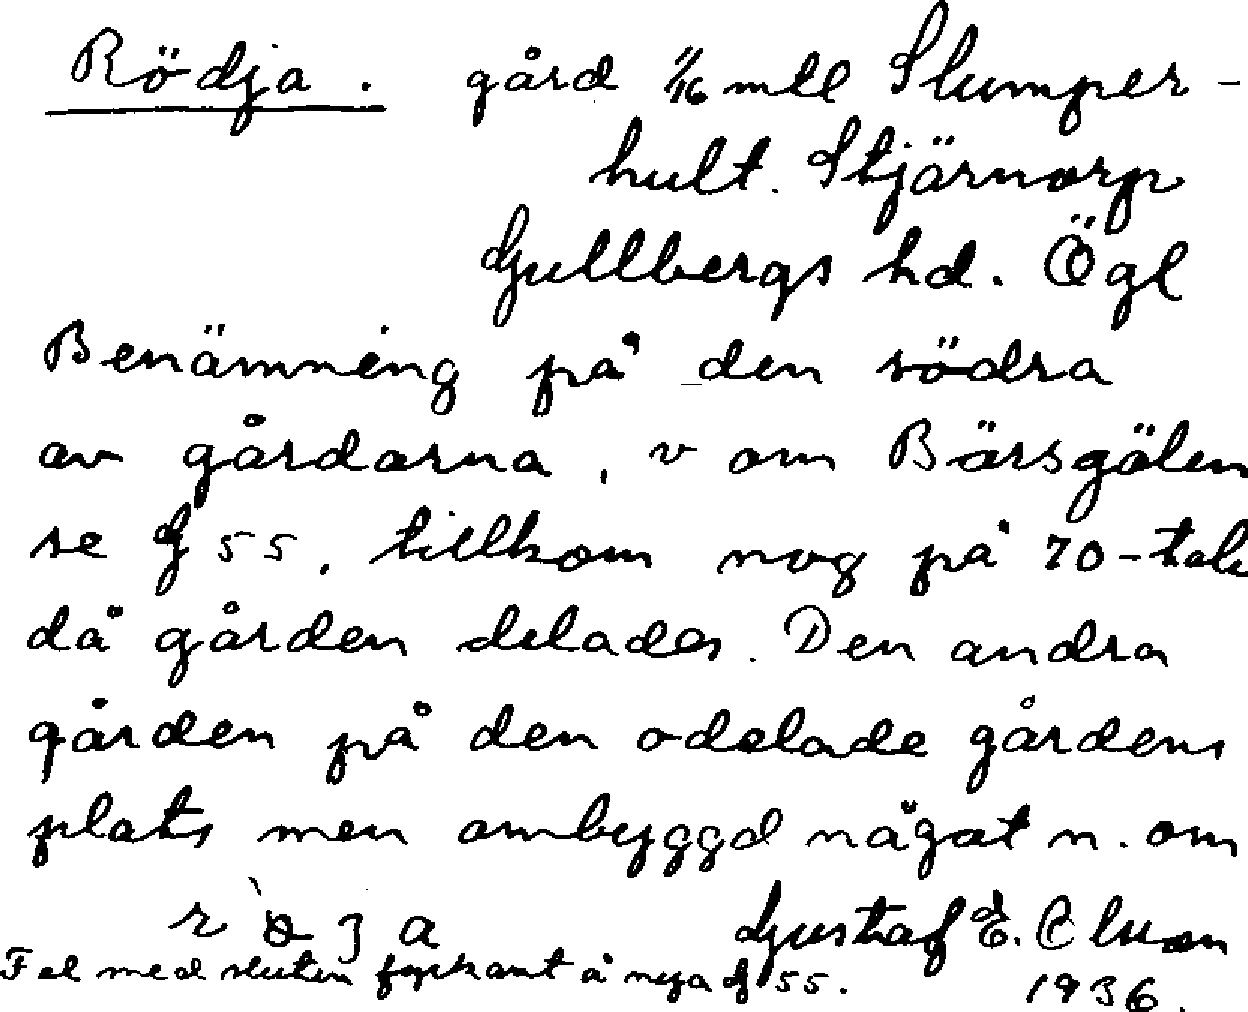 Rödja. gård 1/16 mtl Slumper-
hult. Stjärnorp
Gullbergs hd. Ögl
Benämning på den södra
av gårdarna, v om Bärsgölen
se G 55, tillkom nog på 70-tale
då gården delades. Den andra
gården på den odelade gårdens
plats men ombyggd något n. om
Gustaf E. Cluson
Fel med sluten fyrkant å nya G 55.
1936.